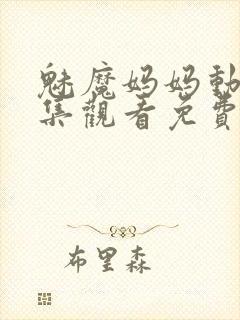 魅魔妈妈動
集觀看免費
布里森